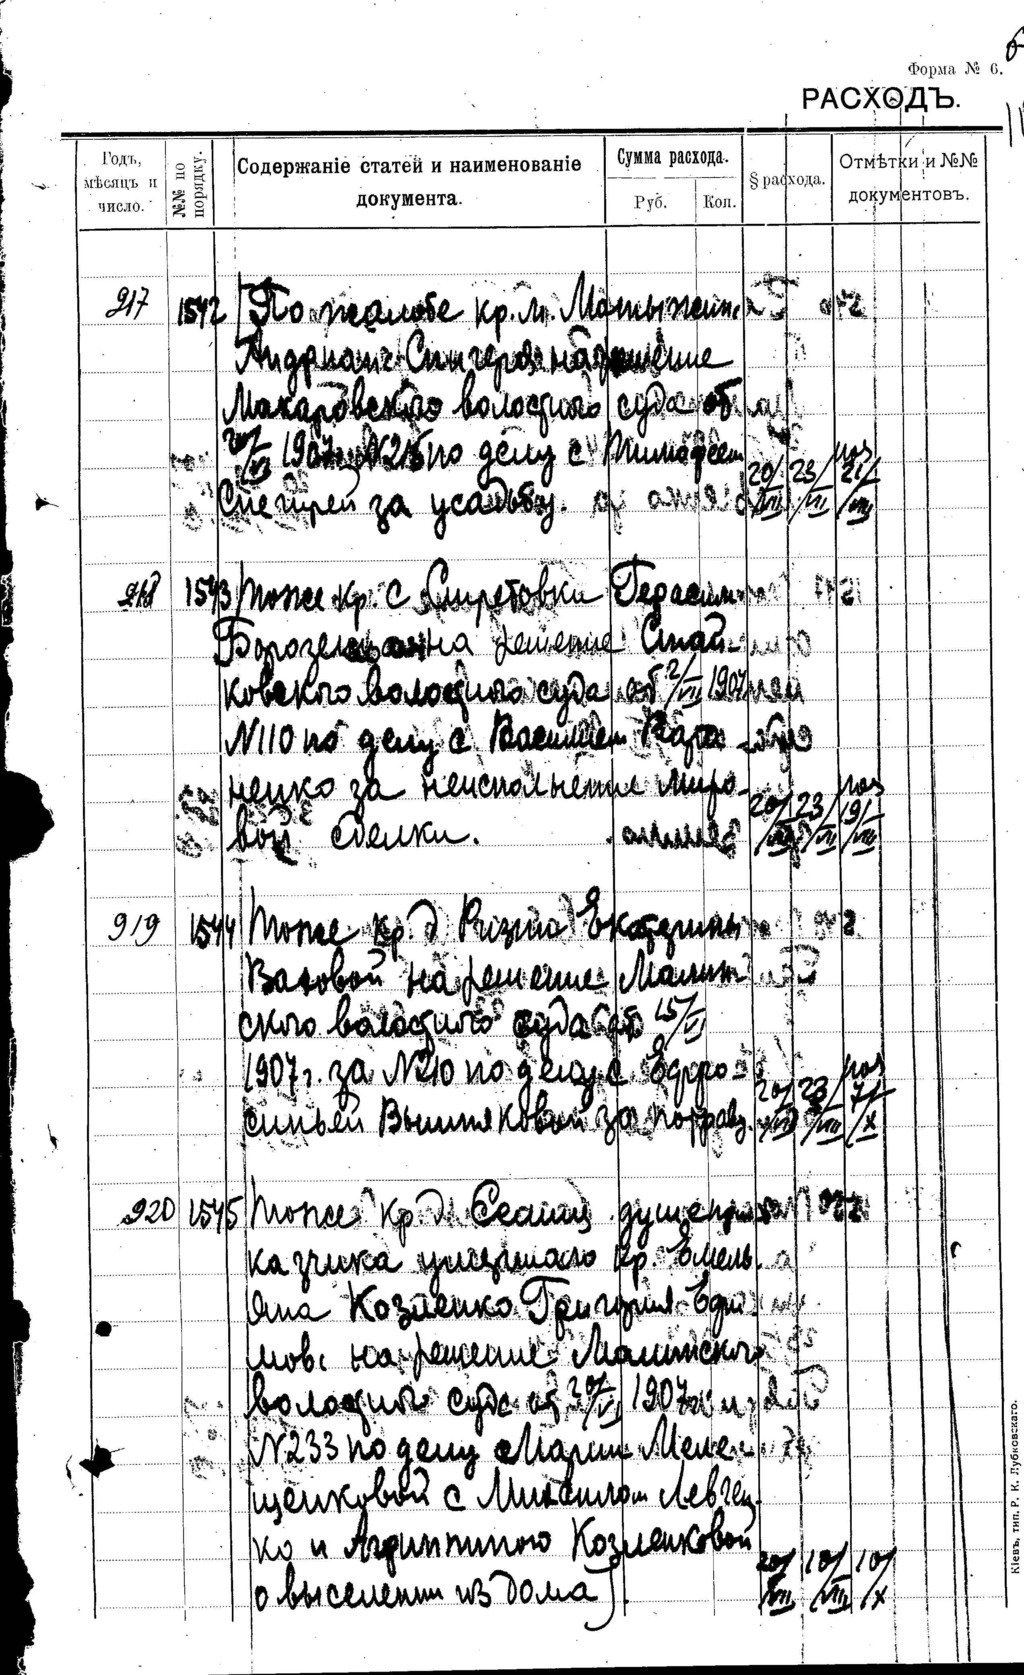 Форма № 6.
РАСХОДЪ.
Годъ, мѣсяцъ и число.
№№ по порядку.
Содержаніе статей и наименованіе документа.
Сумма расхода.
Руб.
Коп.
§ расхода.
Отмѣтки и №№ документовъ.
917 1542 По жалобе кр. м. Мотыжин.
Андриана Снегиря на решение
Макаровского волостного суда от
20/VI 1907 г. № 215 по делу с Тимофеем
Снегирей за усадьбу. 20/VII 23/VII
918 1543 Тоже кр. с. Ситретовки Герасим
на решение Став-
ковского волостного суда от 2/VII 1907
N110 по делу с Василием Вара-
ненко за неисполнение миро- 20/VII 23/VII 19/VIII
вой сделки.
919 1544 Тоже кр. д. Ризни Екатерины
Ваховой на решение Малин-
ского волостного суда от 15/VI
1907 г. за № 210 по делу с Ефро-
синьей Вышняковой за потраву. 20/VII 23/VII 7/X
920 1545 Тоже кр. д. душепри-
казчика умершаго кр. Емель-
яна Козленко Григория Ефи-
мов. на решение Малинского
волостного суда от 20/VI 1907 г.
N233 по делу Марии Меле-
щенковой с Михаилом Левчен-
ко и Агрипиною Козленковой
о выселении из дома 20/VII 10/VIII 10/X
Кіевъ, тип. Р. К. Лубковскаго.